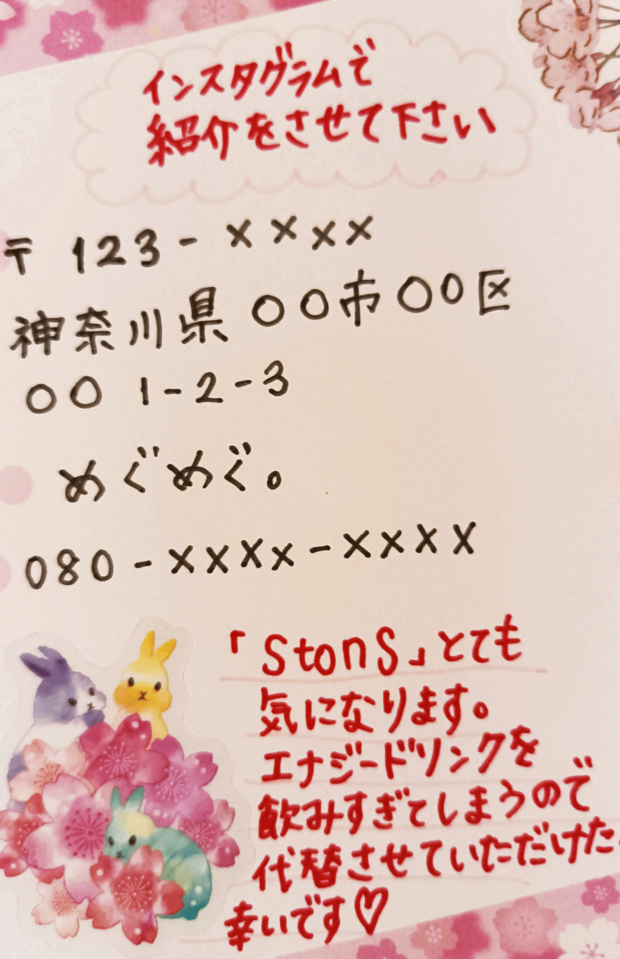 インスタグラムで
紹介をさせて下さい
〒 123-××××
神奈川県〇〇市〇〇区
〇〇 1-2-3
めぐめぐ。
080-××××-××××
「StonS」とても
気になります。
エナジードリンクを
飲みすぎてしまうので
代替させていただけた
幸いです♡